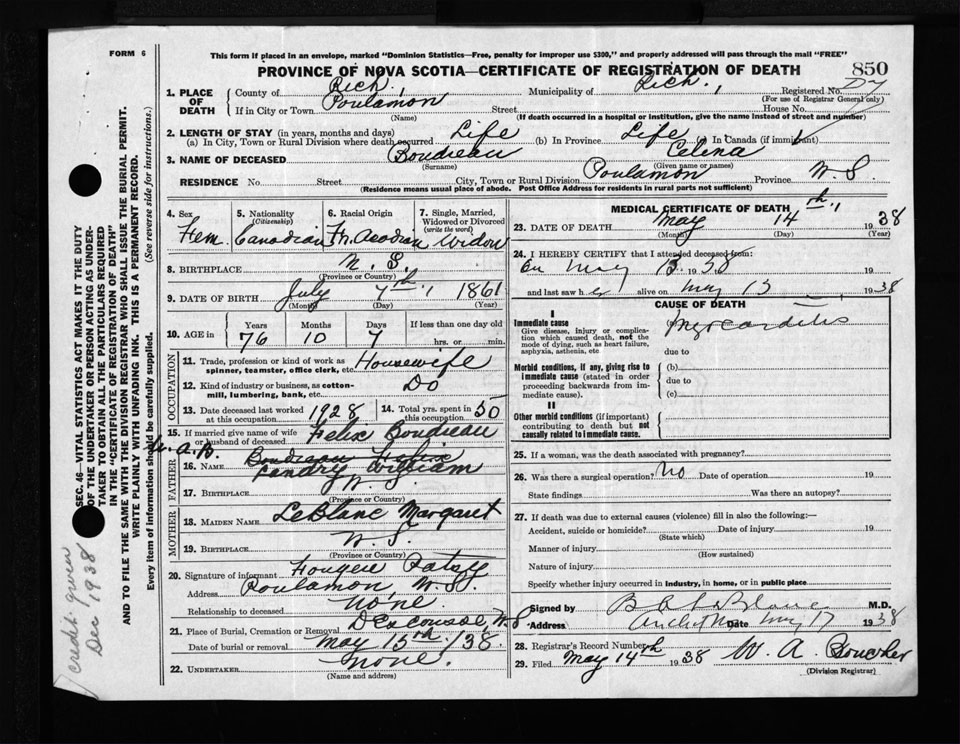 FORM 6
This form if placed in an envelope, marked "Dominion Statistics—Free, penalty for improper use $300," and properly addressed will pass through the mail "FREE"
PROVINCE OF NOVA SCOTIA—CERTIFICATE OF REGISTRATION OF DEATH
850
1. PLACE OF DEATH
County of Rich. Municipality of Rich. Registered No.
(For use of Registrar General only)
If in City or Town Poulamon Street House No.
(Name) (If death occurred in a hospital or institution, give the name instead of street and number)
2. LENGTH OF STAY (in years, months and days)
(a) In City, Town or Rural Division where death occurred Life (b) In Province Life (c) In Canada (if immigrant)
3. NAME OF DECEASED Boudreau Celina
(Surname) (Given name or names)
RESIDENCE No. Street City, Town or Rural Division Poulamon Province N. S.
(Residence means usual place of abode. Post Office Address for residents in rural parts not sufficient)
4. Sex Fem.
5. Nationality (Citizenship) Canadian
6. Racial Origin Fr. Acadian
7. Single, Married, Widowed or Divorced (write the word) Widow
8. BIRTHPLACE N. S.
(Province or Country)
9. DATE OF BIRTH July 7th 1861
(Month) (Day) (Year)
10. AGE in Years Months Days If less than one day old
76 10 7 hrs. or min.
OCCUPATION
11. Trade, profession or kind of work as spinner, teamster, office clerk, etc. Housewife
12. Kind of industry or business, as cotton-mill, lumbering, bank, etc. Do
13. Date deceased last worked at this occupation 1928
14. Total yrs. spent in this occupation 50
15. If married give name of wife or husband of deceased Felix Boudreau
W. A. B.
FATHER
16. NAME Boudreau Felix
Landry William
17. BIRTHPLACE N. S.
(Province or Country)
MOTHER
18. MAIDEN NAME LeBlanc Margaret
19. BIRTHPLACE N. S.
(Province or Country)
20. Signature of informant Fougere Patsy
Address Poulamon N. S.
Relationship to deceased None.
21. Place of Burial, Cremation or Removal D'Escousse, N. S.
Date of burial or removal May 15th /38.
22. UNDERTAKER None.
(Name and address)
MEDICAL CERTIFICATE OF DEATH
23. DATE OF DEATH May 14th, 1938
(Month) (Day) (Year)
24. I HEREBY CERTIFY that I attended deceased from:
on May 13 1938 19
and last saw her alive on May 13 1938
CAUSE OF DEATH
I
Immediate cause (a) Myocarditis
Give disease, injury or complication which caused death, not the mode of dying, such as heart failure, asphyxia, asthenia, etc
due to
Morbid conditions, if any, giving rise to immediate cause (stated in order proceeding backwards from immediate cause).
(b)
due to
(c)
II
Other morbid conditions (if important) contributing to death but not causally related to immediate cause.
25. If a woman, was the death associated with pregnancy?
26. Was there a surgical operation? No Date of operation 19
State findings Was there an autopsy?
27. If death was due to external causes (violence) fill in also the following:—
Accident, suicide or homicide? Date of injury 19
(State which)
Manner of injury
(How sustained)
Nature of injury
Specify whether injury occurred in industry, in home, or in public place
Signed by B LeBlanc M.D.
Address Date May 17 1938
28. Registrar's Record Number
29. Filed May 14th 1938 W. A. Boucher
(Division Registrar)
SEC. 46—VITAL STATISTICS ACT MAKES IT THE DUTY
OF THE UNDERTAKER OR PERSON ACTING AS UNDER-
TAKER TO OBTAIN ALL THE PARTICULARS REQUIRED
IN THE "CERTIFICATE OF REGISTRATION OF DEATH"
AND TO FILE THE SAME WITH THE DIVISION REGISTRAR WHO SHALL ISSUE THE BURIAL PERMIT.
WRITE PLAINLY WITH UNFADING INK. THIS IS A PERMANENT RECORD.
Every item of information should be carefully supplied. (See reverse side for instructions.)
credit given
Dec 1938